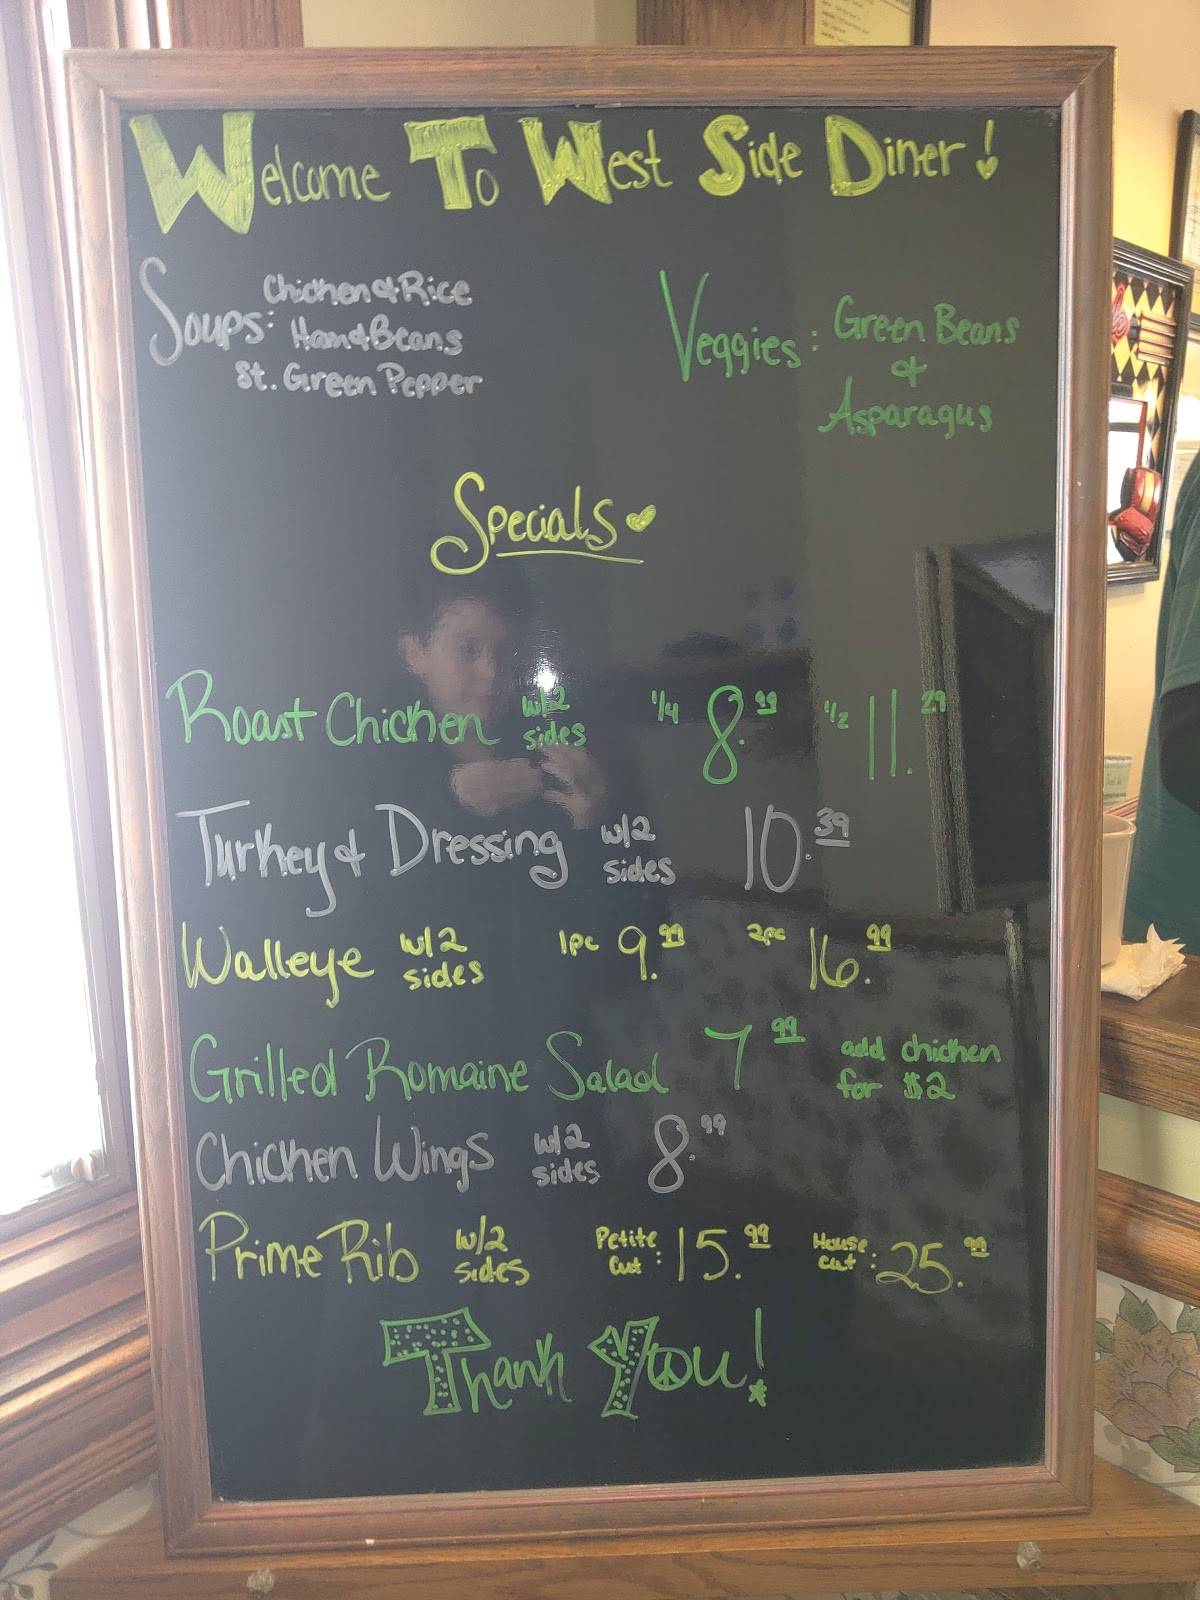 Welcome To West Side Diner!
Soups: Chicken & Rice
Ham & Beans
St. Green Pepper
Veggies: Green Beans
&
Asparagus
Specials
Roast Chicken w/2 sides 1/4 8.99 1/2 11.29
Turkey & Dressing w/2 sides 10.39
Walleye w/2 sides 1pc 9.99 2pc 16.99
Grilled Romaine Salad 7.99 add chicken for $2
Chicken Wings w/2 sides 8.99
Prime Rib w/2 sides Petite cut: 15.99 House cut: 25.99
Thank You!